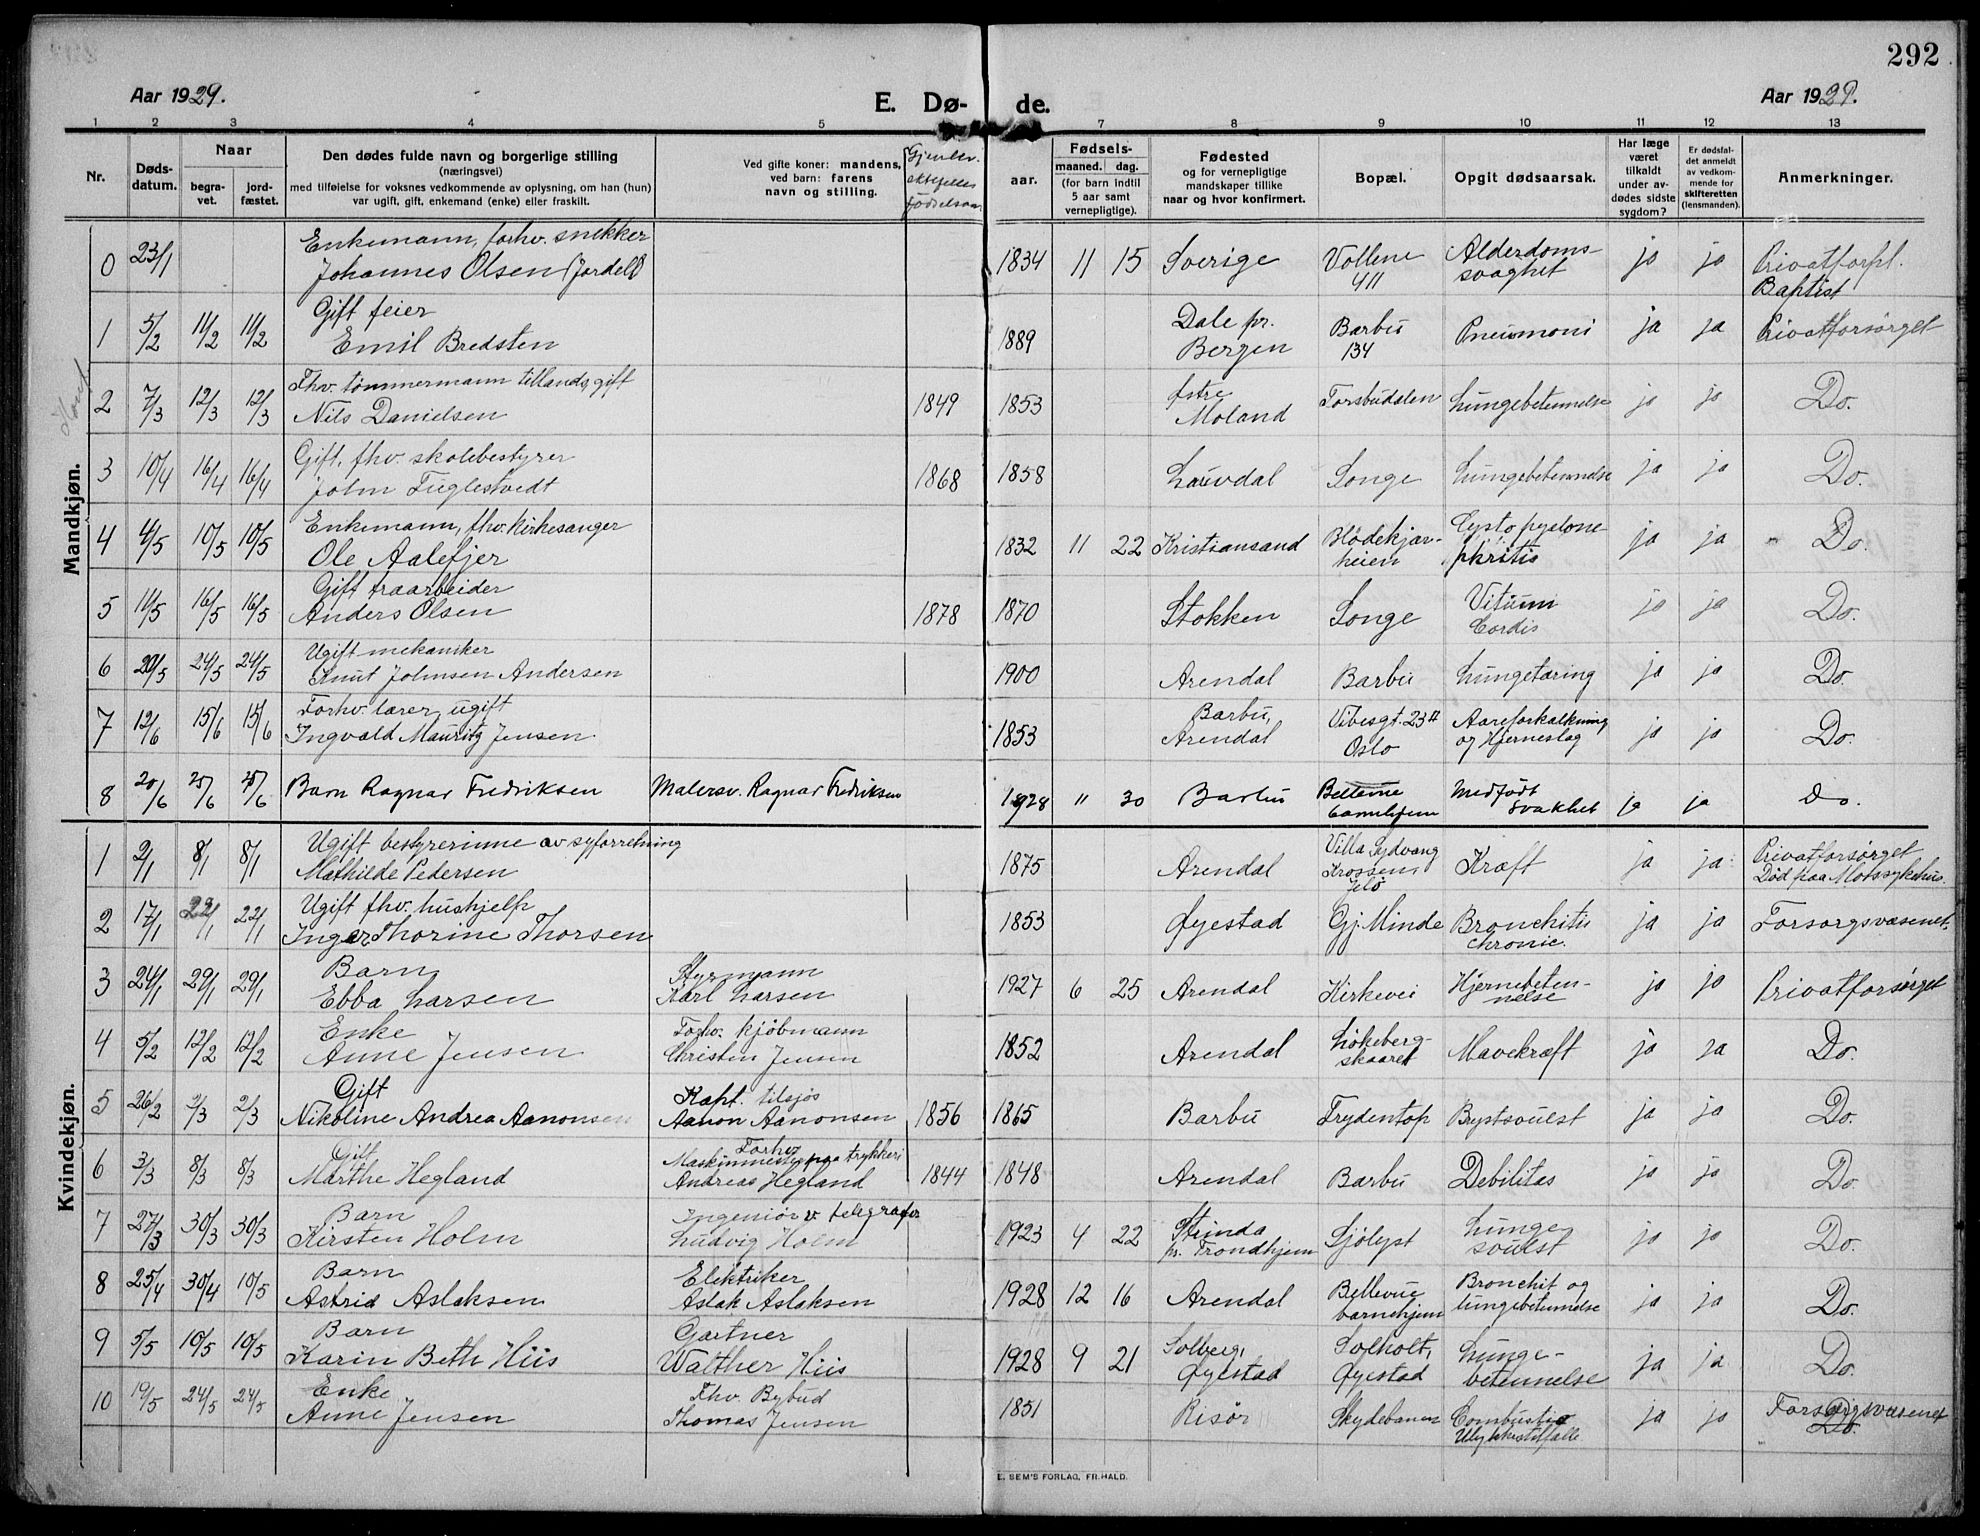 292
Aar 1929.
E. Dø- de.
Aar 1929.
1 2 3 4 5 7 8 9 10 11 12 13
Nr.
Døds-
datum.
Naar
begra-
vet.
jord-
fæstet.
Den dødes fulde navn og borgerlige stilling
(næringsvei)
med tilføielse for voksnes vedkommende av oplysning, om han (hun)
var ugift, gift, enkemand (enke) eller fraskilt.
Ved gifte koner: mandens,
ved barn: farens
navn og stilling.
Gjenlev.
ektefelles
fødselsaar
aar.
Fødsels-
maaned. dag.
(for barn indtil
5 aar samt
vernepligtige).
Fødested
og for vernepligtige
mandskaper tillike
naar og hvor konfirmert.
Bopæl.
Opgit dødsaarsak.
Har læge
været
tilkaldt
under av-
dødes sidste
sygdom?
Er dødsfal-
det anmeldt
av vedkom-
mende for
skifteretten
(lensmanden).
Anmerkninger.
Mandkjøn.
0 23/1 Enkemann, forhv. snekker
Johannes Olsen (Jordell) 1834 11 15 Sverige Vollene
411 Alderdoms-
svaghet ja ja Privatforpl.
Baptist
1 5/2 11/2 11/2 Gift feier
Emil Bredsten 1889 Dale pr.
Bergen Barbu
134 Pneumoni ja ja Privatforsørget
2 7/3 12/3 12/3 Fhv. tømmermann tillands, gift
Nils Danielsen 1849 1853 Østre
Moland Torsbudalen Lungebetennelse ja ja Do.
3 10/4 16/4 16/4 Gift, fhv. skolebestyrer
John Fuglestvedt 1868 1858 Laurdal Songe Lungebetennelse ja ja Do.
4 4/5 10/5 10/5 Enkemann, fhv. kirkesanger
Ole Aalefjer 1832 11 22 Kristiansand Blødekjær-
heien Cystopyelone
phritis ja ja Do.
5 11/5 16/5 16/5 Gift traarbeider
Anders Olsen 1878 1870 Stokken Songe Vitium
Cordis ja ja Do.
6 20/5 24/5 24/5 Ugift mekaniker
Knut Johnsen Andersen 1900 Arendal Barbu Lungetæring ja ja Do.
7 12/6 15/6 15/6 Forhv. lærer, ugift
Ingvald Mauritz Jensen 1853 Barbu,
Arendal Vibesgt. 23 II
Oslo Aareforkalkning
og Hjerneslag ja ja Do.
8 20/6 25/6 25/6 Barn Ragnar Fredriksen Malersv. Ragnar Fredriksen 1928 11 30 Barbu Bellevue
barnehjem Medfødt
svakhet ja ja Do.
Kvindekjøn.
1 2/1 8/1 8/1 Ugift bestyrerinne av syforretning
Mathilde Pedersen 1875 Arendal Villa Sydvang
Krossen,
Kræft ja ja Privatforsørget
Død paa
2 17/1 22/1 22/1 Ugift fhv. hushjelp
Inger Thorine Thorsen 1853 Øyestad Gj. Minde Bronchitis
chronic. ja ja Forsorgsvæsenet.
3 24/1 29/1 29/1 Barn
Ebba Larsen Styrmann
Karl Larsen 1927 6 25 Arendal Kirkevei Hjernebeten-
nelse ja ja Privatforsørget
4 5/2 12/2 12/2 Enke
Anne Jensen Forhv. kjøbmann
Christen Jensen 1852 Arendal Løkeberg-
skaaret Mavekræft ja ja Do.
5 26/2 2/3 2/3 Gift
Nikoline Andrea Aanonsen Kapt. tilsjøs
Aanon Aanonsen 1856 1865 Barbu Frydentop Brystsvulst ja ja Do.
6 3/3 8/3 8/3 Gift
Marthe Hegland Forhv.
Maskinmester paa trykkeri
Andreas Hegland 1844 1848 Arendal Barbu Debilitas ja ja Do.
7 27/3 30/3 30/3 Barn
Kirsten Holm Ingeniør v. telegrafer
Ludvig Holm 1923 4 22 Strinda
pr. Trondhjem Sjølyst Lunge
svulst ja ja Do.
8 25/4 30/4 10/5 Barn
Astrid Aslaksen Elektriker
Aslak Aslaksen 1928 12 16 Arendal Bellevue
barnehjem Bronchit og
lungebetennelse ja ja Do.
9 5/5 10/5 10/5 Barn
Karin Beth Hiis Gartner
Walther Hiis 1928 9 21 Solberg,
Øyestad Solholt,
Øyestad Lunge-
betennelse ja ja Do.
10 19/5 24/5 24/5 Enke
Anne Jensen Fhv. Bybud
Thomas Jensen 1851 Risør Skydebanen Combustio
Ulykkestilfælle ja ja Forsorgsvæsenet
Do.
E. SEM'S FORLAG, FR.HALD.